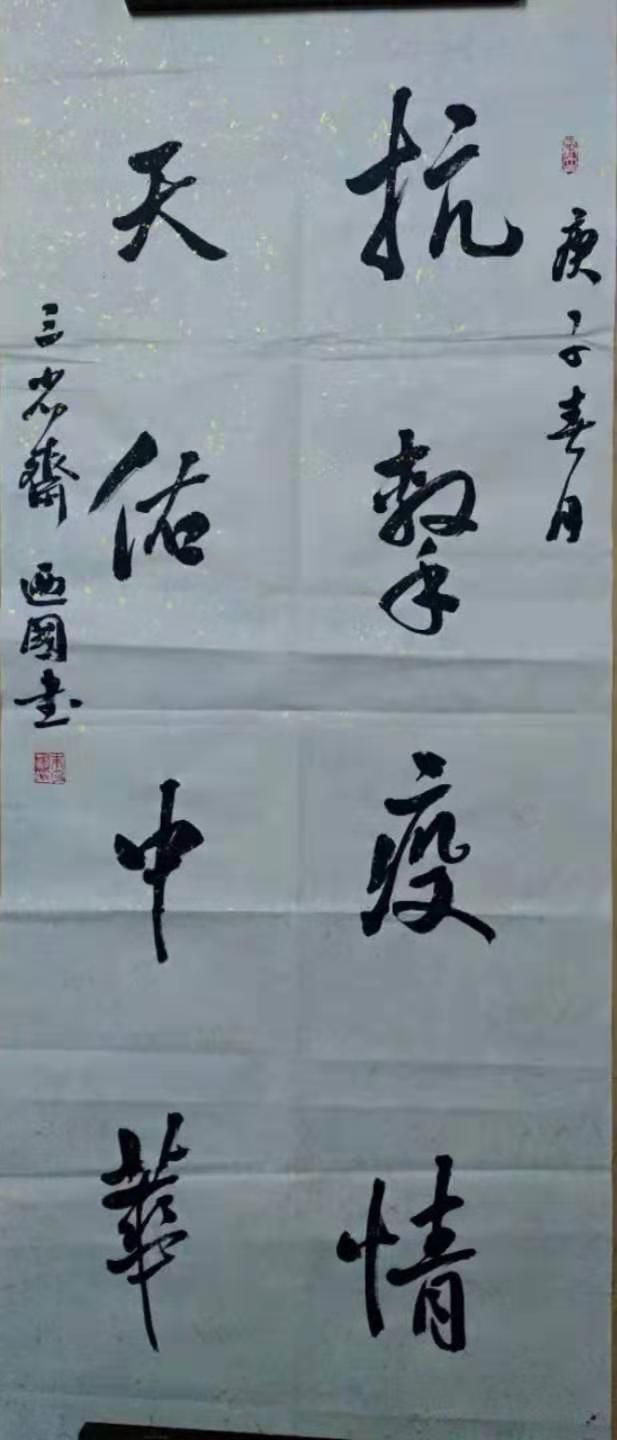 庚子春月
抗擊疫情
天佑中華
三省齋 西國書